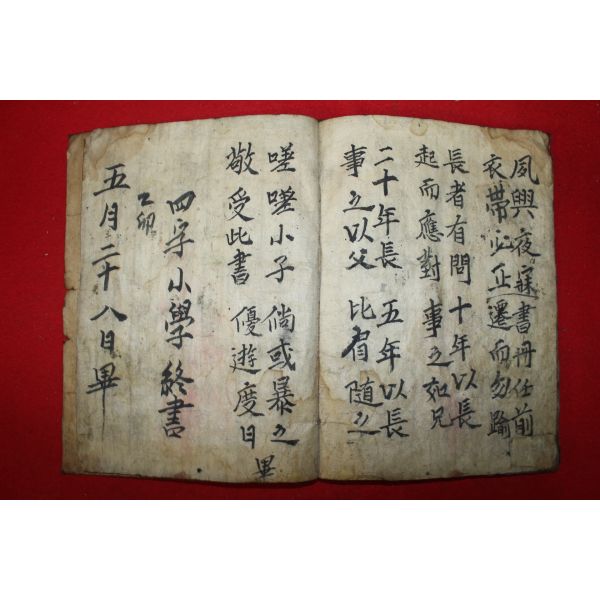 夙興夜寐書冊在前
衣帶必正還而勿踰
長者有問 十年以長
起而應對 事之如兄
二十年長 五年以長
事之以父 比肩隨之
嗟嗟小子 倘或暴之
敬受此書 優遊度日 畢
四字小學終書
乙卯
五月二十八日畢